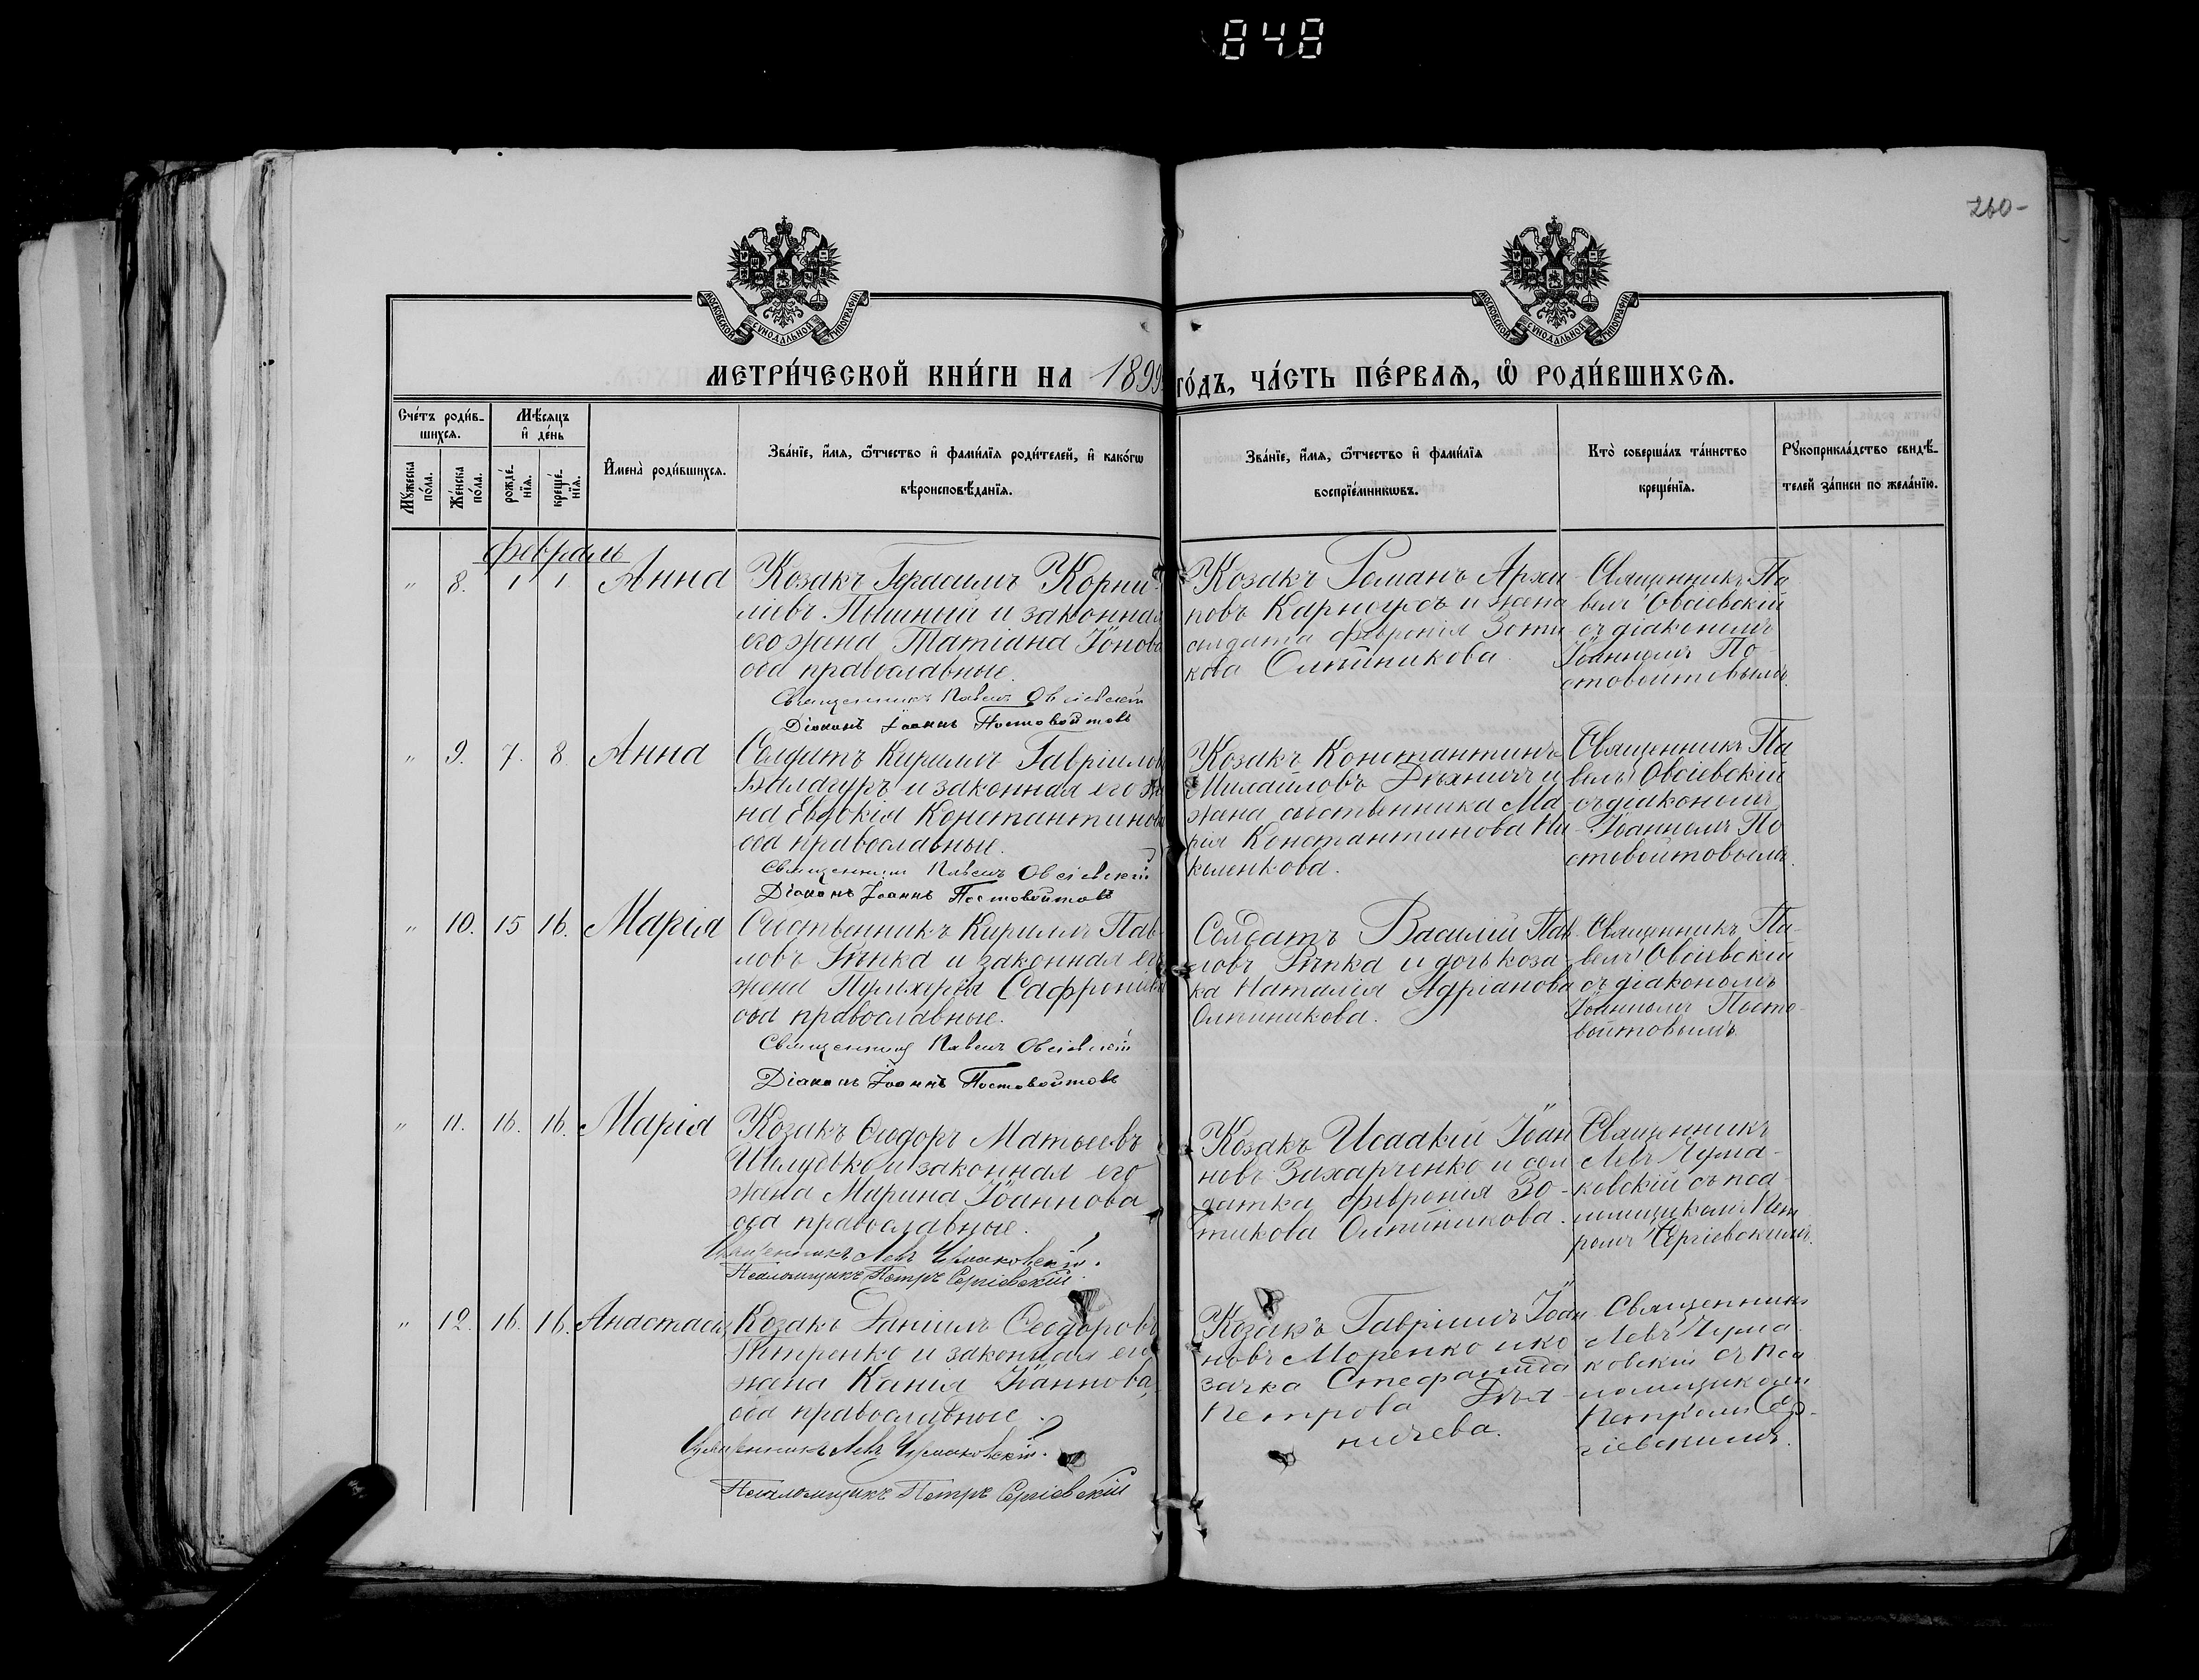 848
260-
МОСКОВСКОЙ СѴНОДАЛЬНОЙ ТИПОГРАФІИ
МОСКОВСКОЙ СѴНОДАЛЬНОЙ ТИПОГРАФІИ
МЕТРИ́ЧЕСКОЙ КНИ́ГИ НА 1899 ГО́ДЪ, ЧА́СТЬ ПЕ́РВАѦ, Ѽ РОДИ́ВШИХСѦ.
Сче́тъ роди́в-
шихсѧ.
Мꙋ́жеска
по́ла.
Же́нска
по́ла.
Мѣ́сѧцъ
и҆ де́нь
рожде́-
нїѧ.
креще́-
нїѧ.
И҆мена̀ роди́вшихсѧ.
Зва́нїе, и҆́мѧ, ѻ҆́тчество и҆ фами́лїѧ роди́телей, и҆ како́гѡ
вѣроисповѣ́данїѧ.
Зва́нїе, и҆́мѧ, ѻ҆́тчество и҆ фами́лїѧ
воспрїе́мникѡвъ.
Кто̀ соверша́лъ та́инство
креще́нїѧ.
Рꙋкоприкла́дство свидѣ́-
телей за́писи по жела́нїю.
февраль
" 8. 1 1 Анна
Козакъ Герасимъ Корни-
ліевъ Пышный и законная
его жена Татіана Іонова
оба православные.
Священникъ Павелъ Овсіевскій
Діаконъ Іоаннъ Постовойтовъ
Козакъ Романъ Архи-
повъ Карнаусъ и жена
солдата Февронія Зоти-
кова Олѣйникова
Священникъ Па
велъ Овсіевскій
съ діакономъ
Іоанномъ По-
стовойтовымъ.
" 9. 7. 8. Анна
Солдатъ Кириллъ Гавріиловъ
Балагуръ и законная его же
на Евдокія Константинова
оба православные.
Священникъ Павелъ Овсіевскій
Діаконъ Іоаннъ Постовойтовъ
Козакъ Константинъ
Михайловъ Дѣяничъ и
жена собственника Ма-
рія Константинова Ни-
коленкова.
Священникъ Па
велъ Овсіевскій
съ діакономъ
Іоанномъ По
стовойтовымъ.
" 10. 15 16. Марія
Собственникъ Кириллъ Пав-
ловъ Рѣпка и законная его
жена Пульхерія Сафроніева
оба православные.
Священникъ Павелъ Овсіевскій
Діаконъ Іоаннъ Постовойтовъ
Солдатъ Василій Пав-
ловъ Рѣпка и дочь коза-
ка Наталія Адріанова
Олѣйникова.
Священникъ Па-
велъ Овсіевскій
съ діакономъ
Іоанномъ Посто-
войтовымъ
" 11. 16. 16. Марія
Козакъ Ѳеодоръ Матѳеевъ
Шелудько и законная его
жена Марина Іоаннова
оба православные.
Священникъ Левъ Чумаковскій.
Псаломщикъ Петръ Сергіевскій.
Козакъ Исаакій Іоан
новъ Захарченко и сол
датка Февронія Зо-
тикова Олѣйникова.
Священникъ
Левъ Чума-
ковскій съ пса-
ломщикомъ Пет
ромъ Сергіевскимъ.
" 12. 16. 16. Анастасія
Козакъ Даніилъ Ѳеодоровъ
Петренко и законная его
жена Ксенія Іоаннова,
оба православные.
Священникъ Левъ Чумаковскій.
Псаломщикъ Петръ Сергіевскій
Козакъ Гавріилъ Іоан
новъ Моренко и ко
зачка Стефанида
Петрова Дѣя-
ничева.
Священникъ
Левъ Чума-
ковскій съ пса
ломщикомъ
Петромъ Сер-
гіевскимъ.